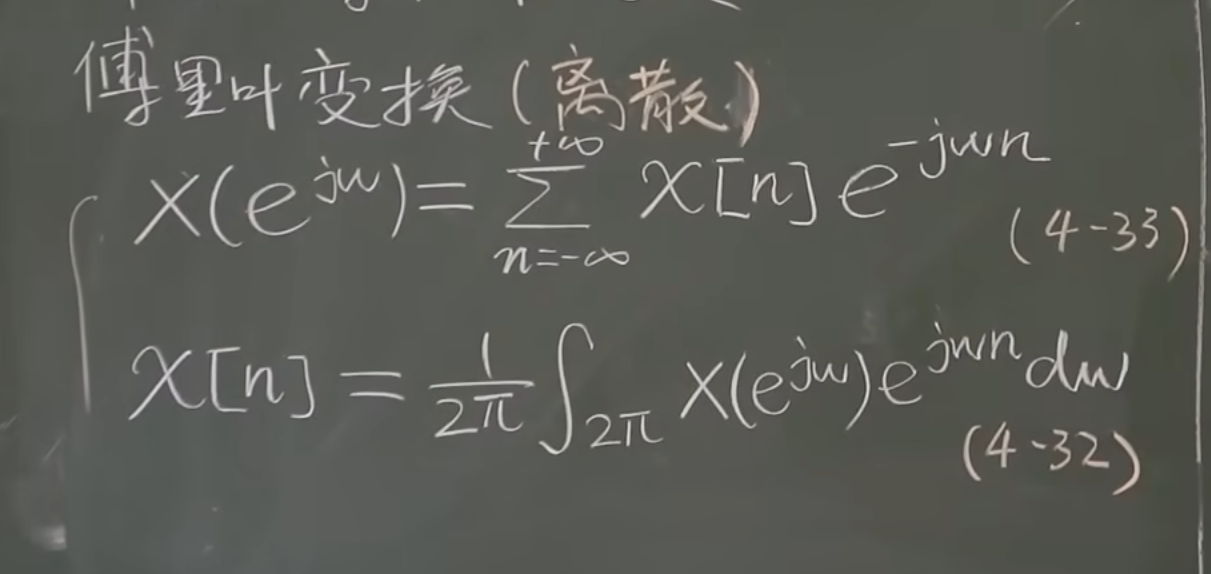 傅里叶变换(离散)
X(e^{jω}) = \sum_{n=-∞}^{+∞} x[n] e^{-jωn}
(4-33)
x[n] = \frac{1}{2π} \int_{2π} X(e^{jω}) e^{jωn} dω
(4-32)